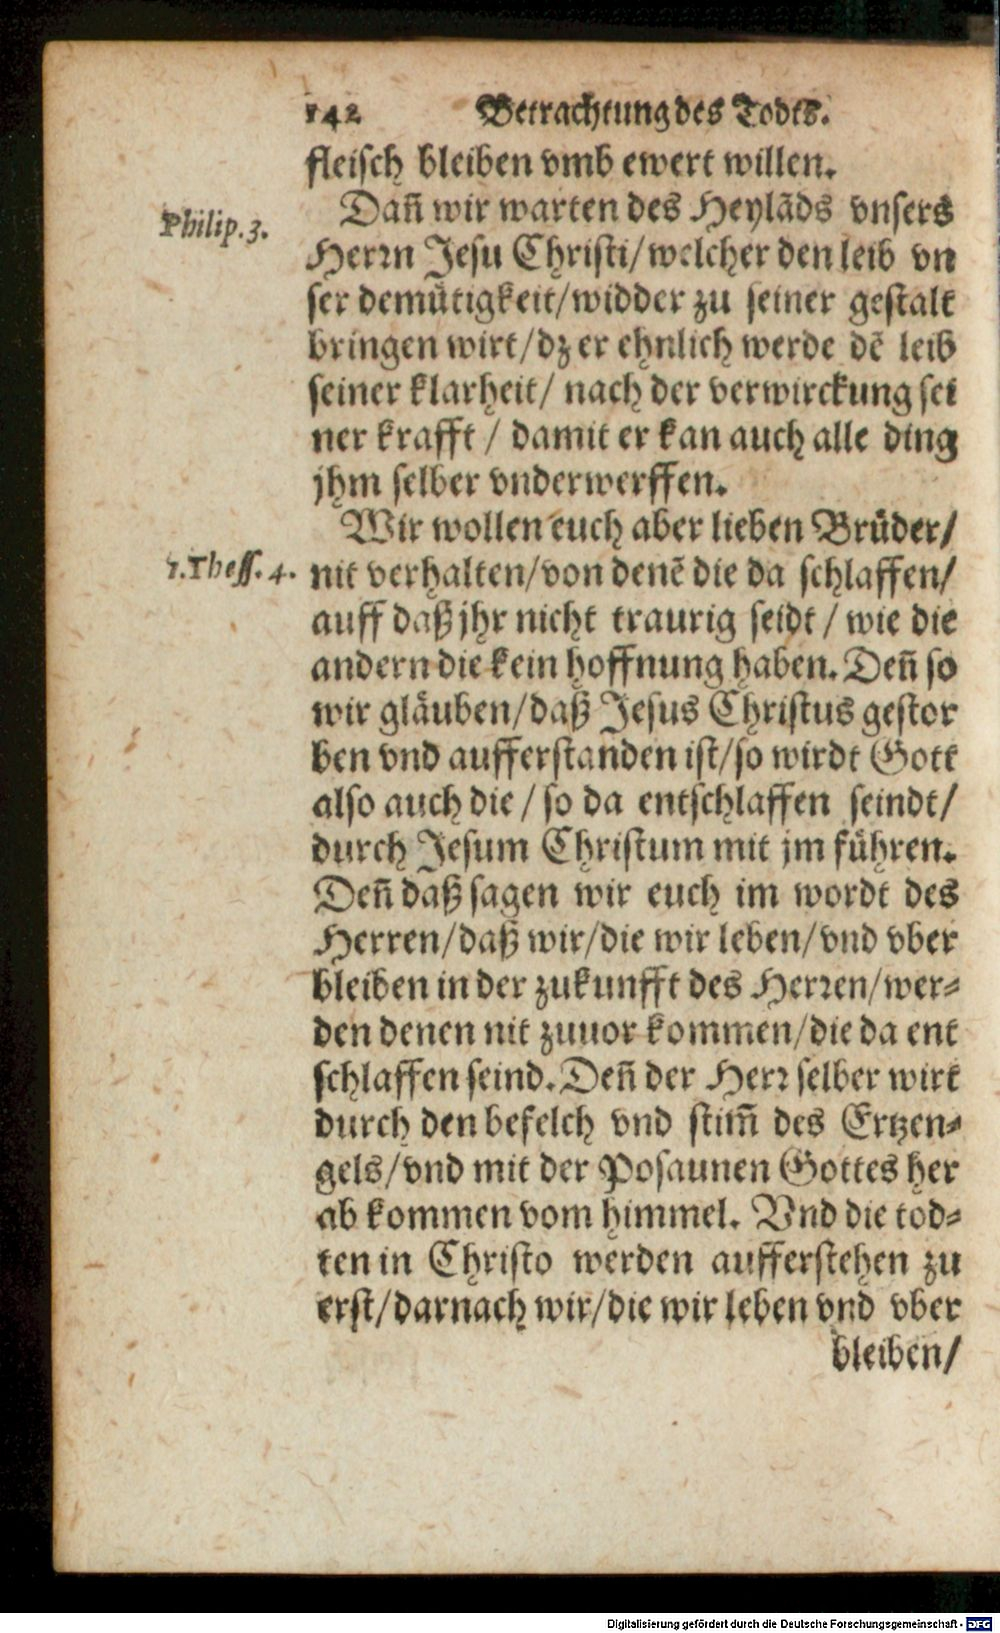 142 Betrachtung des Todts.
fleisch bleiben vmb ewert willen.
Dañ wir warten des Heylãds vnsers
Philip. 3.
Herrn Jesu Christi/welcher den leib vn
ser demütigkeit/widder zu seiner gestalt
bringen wirt/dz er ehnlich werde dẽ leib
seiner klarheit/ nach der verwirckung sei
ner krafft / damit er kan auch alle ding
jhm selber vnderwerffen.
Wir wollen euch aber lieben Brüder/
1. Thess. 4.
nit verhalten/von denẽ die da schlaffen/
auff daß jhr nicht traurig seidt / wie die
andern die kein hoffnung haben. Deñ so
wir gläuben/daß Jesus Christus gestor
ben vnd aufferstanden ist/so wirdt Gott
also auch die / so da entschlaffen seindt/
durch Jesum Christum mit jm führen.
Deñ daß sagen wir euch im wordt des
Herren/daß wir/die wir leben/vnd vber
bleiben in der zukunfft des Herren/wer-
den denen nit zuuor kommen/die da ent
schlaffen seind. Deñ der Herr selber wirt
durch den befelch vnd stim̃ des Ertzen-
gels/vnd mit der Posaunen Gottes her
ab kommen vom himmel. Vnd die tod-
ten in Christo werden aufferstehen zu
erst/darnach wir/die wir leben vnd vber
bleiben/
Digitalisierung gefördert durch die Deutsche Forschungsgemeinschaft - DFG